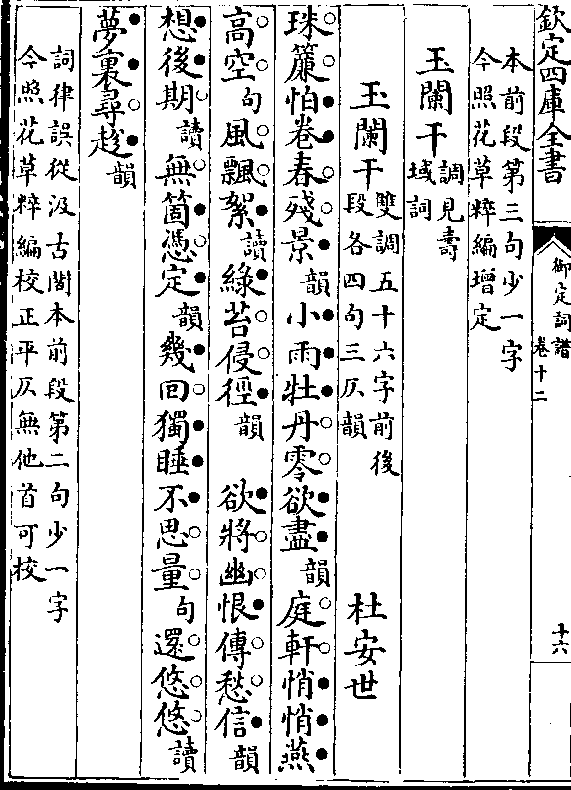 欽定四庫全書
御定詞譜
卷十二
十六
本前段第三句少一字
今照花草粹編增定
玉闌干調見壽
域詞
玉闌干雙調五十六字前後
段各四句三仄韻
杜安世
珠簾怕卷春殘景韻小雨牡丹零欲盡韻庭軒悄悄燕
高空句風飄絮讀綠苔侵徑韻 欲將幽恨傳愁信韻
想後期讀無箇憑定韻幾回獨睡不思量句還悠悠讀
夢裏尋趂韻
詞律誤從汲古閣本前段第二句少一字
今照花草粹編校正平仄無他首可校